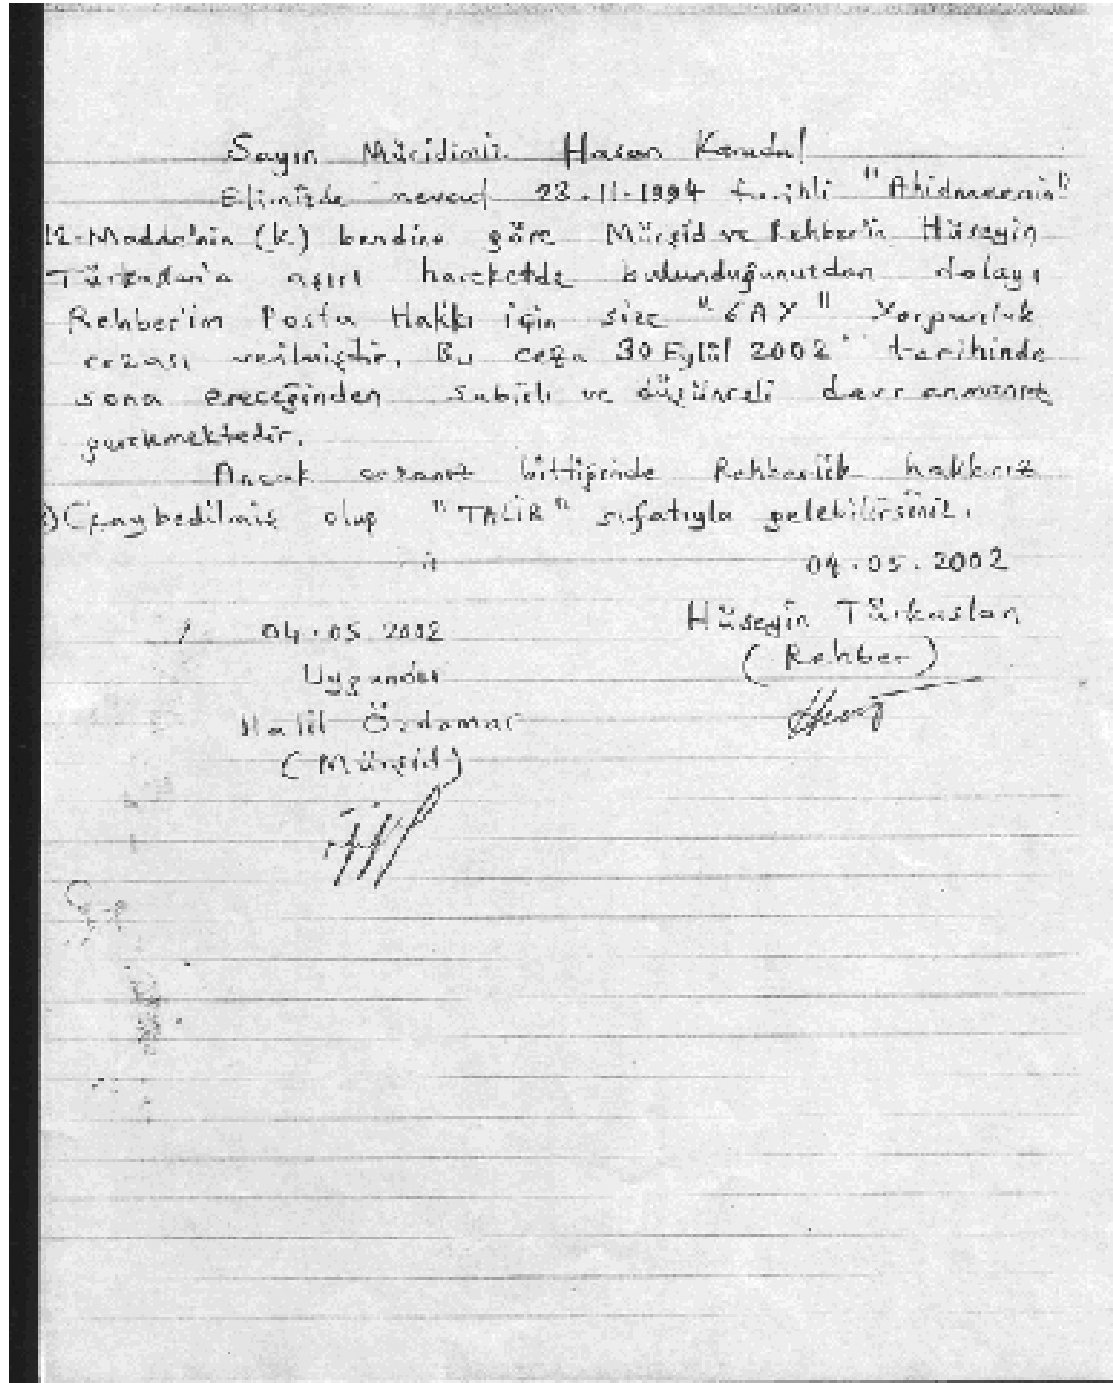 Sayın Müridimiz Hasan
Elimizde mevcut 23-11-1994 tarihli "Ahidnamenin"
12-Madde'nin (k) bendine göre Mürşid ve Rehber'in Hüseyin
Türkaslan'a aşırı hareketde bulunduğunuzdan dolayı
Rehber'im Postu Hakkı için size "6 AY"
cezası verilmiştir. Bu ceza 30 Eylül 2002 tarihinde
sona ereceğinden sabırlı ve düşünceli davranmanız
gerekmektedir.
Ancak cezanız bittiğinde Rehberlik hakkınız
olup "TALİB" sıfatıyla gelebilirsiniz.
04.05.2002
Hüseyin Türkaslan
(Rehber)
04.05.2002
Uygundur
Halil Özdamar
(Mürşid)